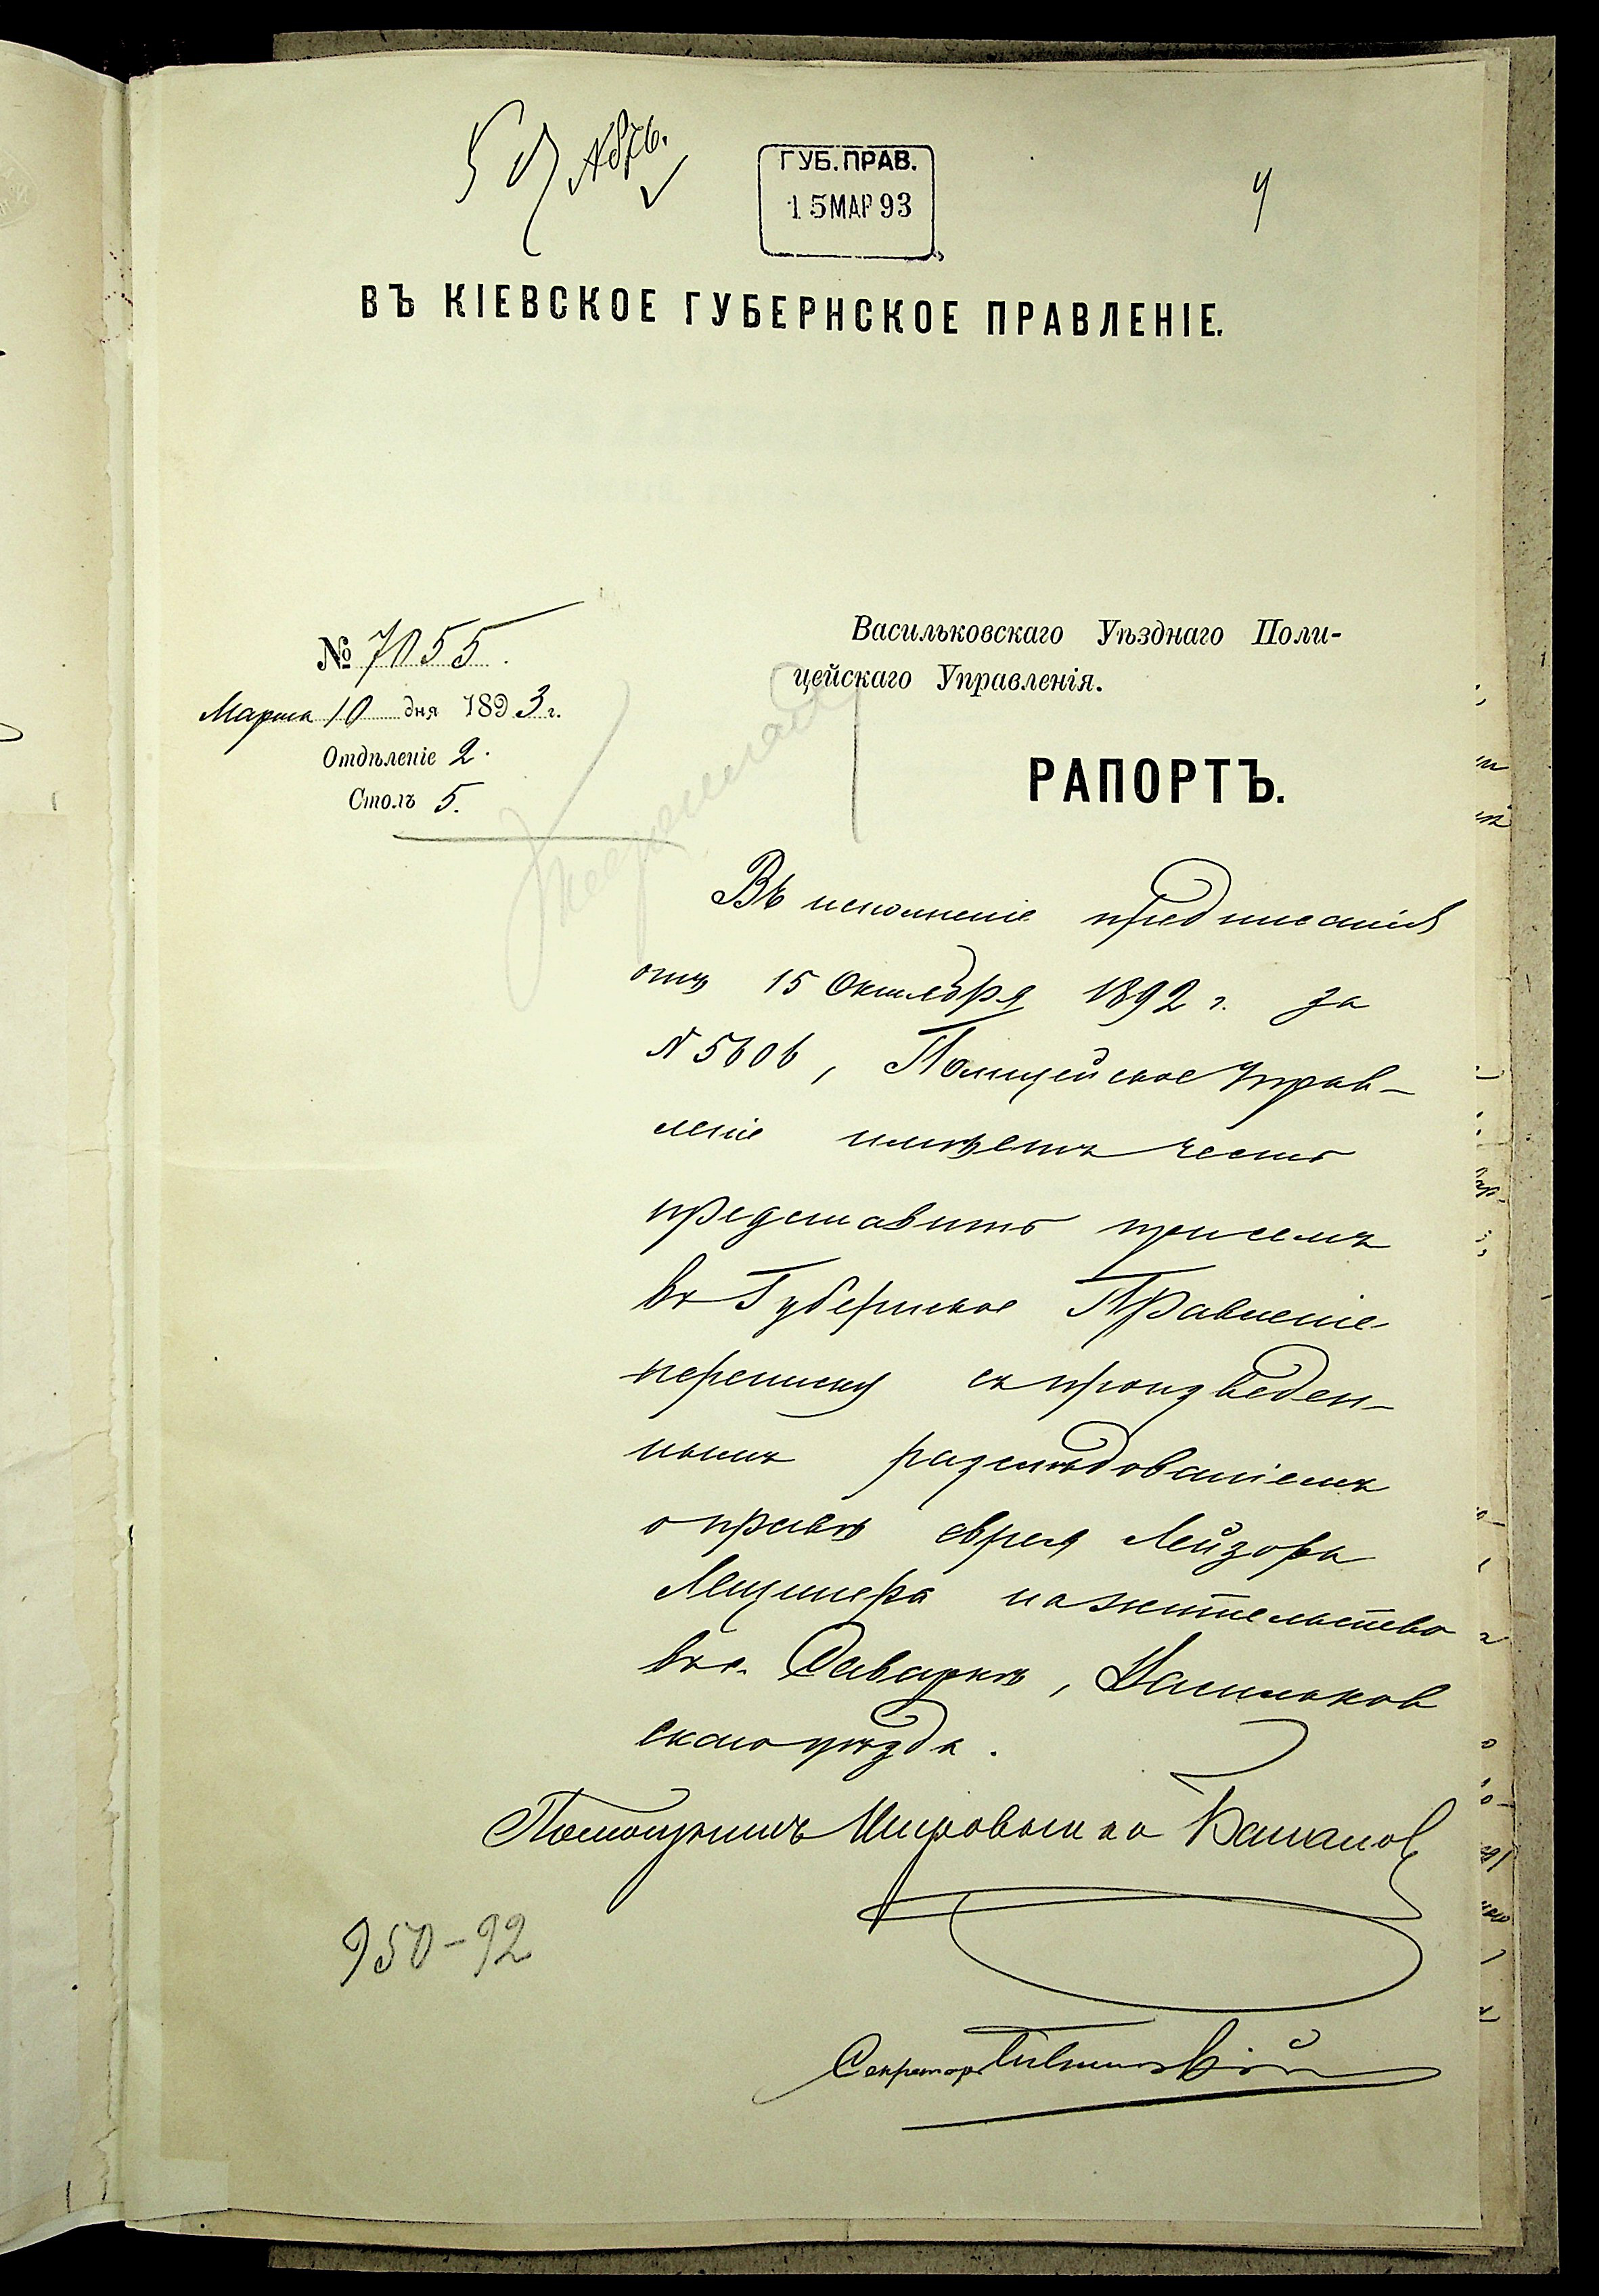 ГУБ. ПРАВ.
15 МАР 93
4
ВЪ КІЕВСКОЕ ГУБЕРНСКОЕ ПРАВЛЕНІЕ.
№ 7055.
Марта 10 дня 1893 г.
Отдѣленіе 2.
Столъ 5.
Васильковскаго Уѣзднаго Поли-
цейскаго Управленія.
РАПОРТЪ.
Въ исполненіе предписанія
отъ 15 Октября 1892 г. за
№ 5606, Полицейское Управ-
леніе имѣетъ честь
представить при семъ
въ Губернское Правленіе
переписку съ произведен-
нымъ разслѣдованіемъ
о правѣ еврея Лейзора
Лещинера на жительство
въ с. Саваркѣ, Васильков
скаго уѣзда.
Помощникъ Исправника
Секретарь
950-92